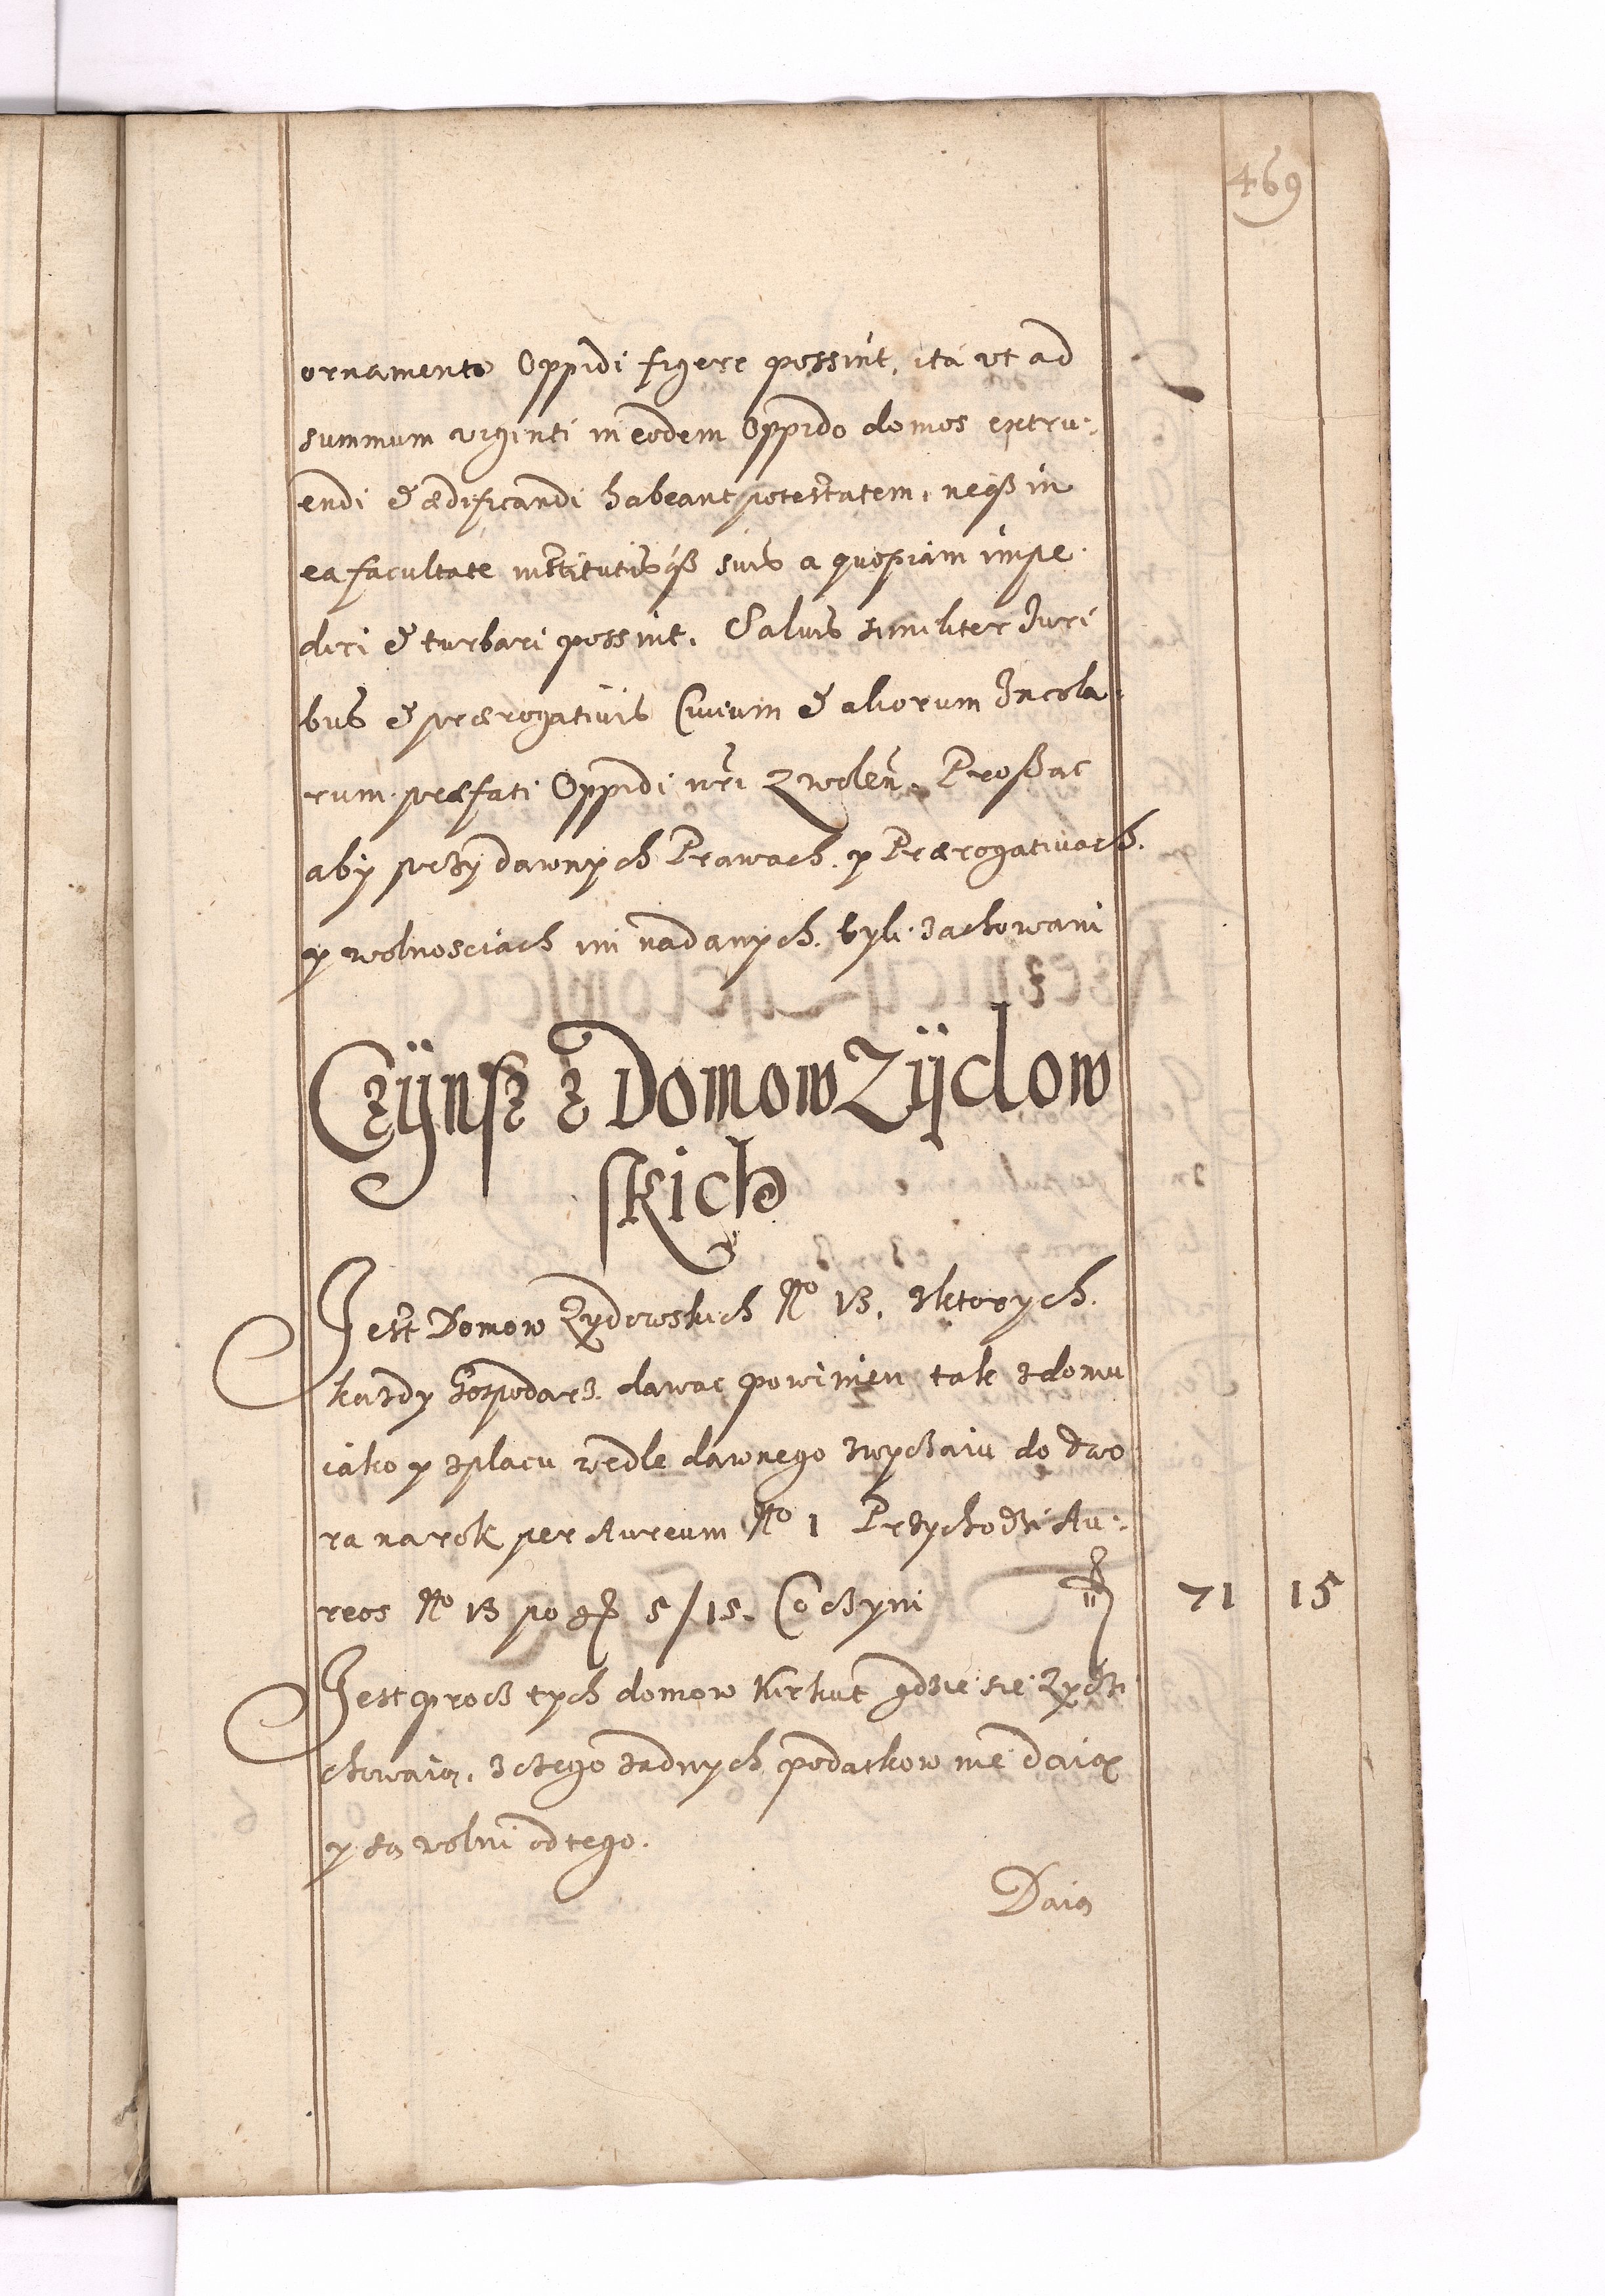 469
ornamento Oppidi figere possint, ita vt ad
summum viginti in eodem Oppido domos extru-
endi & ædificandi habeant potestatem, neqß in
ea facultate institutisqß suis a quopiam impe-
diri & turbari possint. Saluis similiter Iuri
bus & prærogatiuis Ciuium & aliorum Incola-
rum præfati Oppidi nri Zwolen. Proßac
aby przy dawnych Prawach y Prærogatiuach
y wolnosciach im nadanych byli zachowani
Czÿnsz z Domow Zÿdow
skich
Jest Domow Zydowskich No 13. zktorych
kazdy Gospodarz dawac powinien tak zdomu
iako y zplacu wedle dawnego zwyczaiu do dwo
ra na rok per Aureum No 1 Przychodzi Au-
reos No 13 po gß 5/15. Co czyni fl 71 15
Jest procz tych domow Kirkut gdzie sie Zydzi
chowaią, z ctego zadnych podatkow nie daią
y są wolni od tego.
Daią